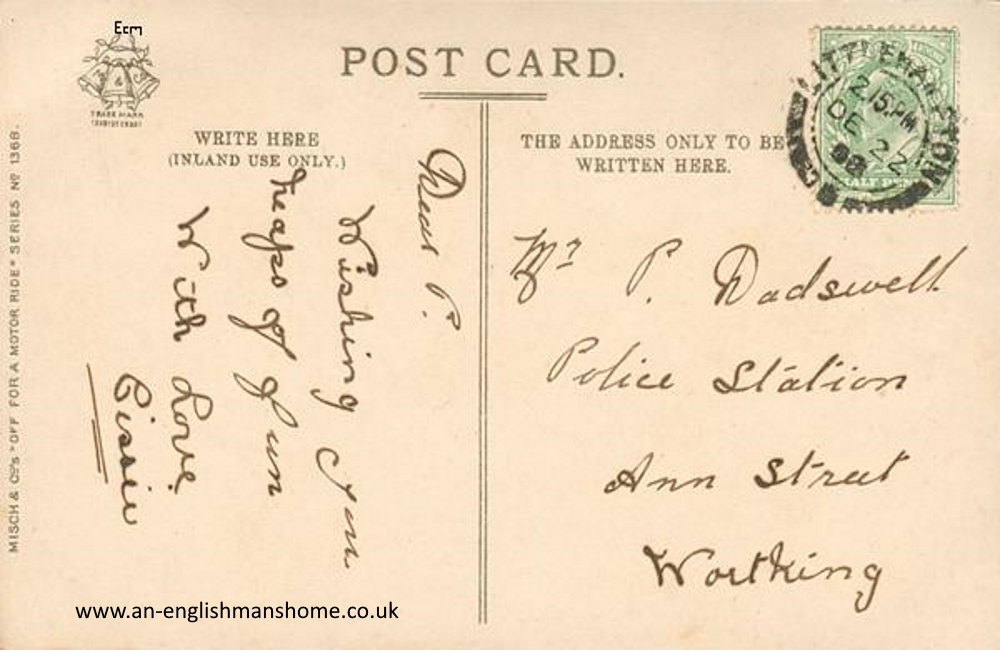 Ecm
TRADE MARK
POST CARD.
WRITE HERE
(INLAND USE ONLY.)
THE ADDRESS ONLY TO BE
WRITTEN HERE.
LITTLEHAMPTON
2 15 PM
DE 22
08
HALF PENNY
MISCH & CO'S "OFF FOR A MOTOR RIDE" SERIES NO 1368.
Dear P.
Wishing you
heaps of fun
With Love
Cissie
Mr P. Dadswell
Police Station
Ann Street
Worthing
www.an-englishmanshome.co.uk